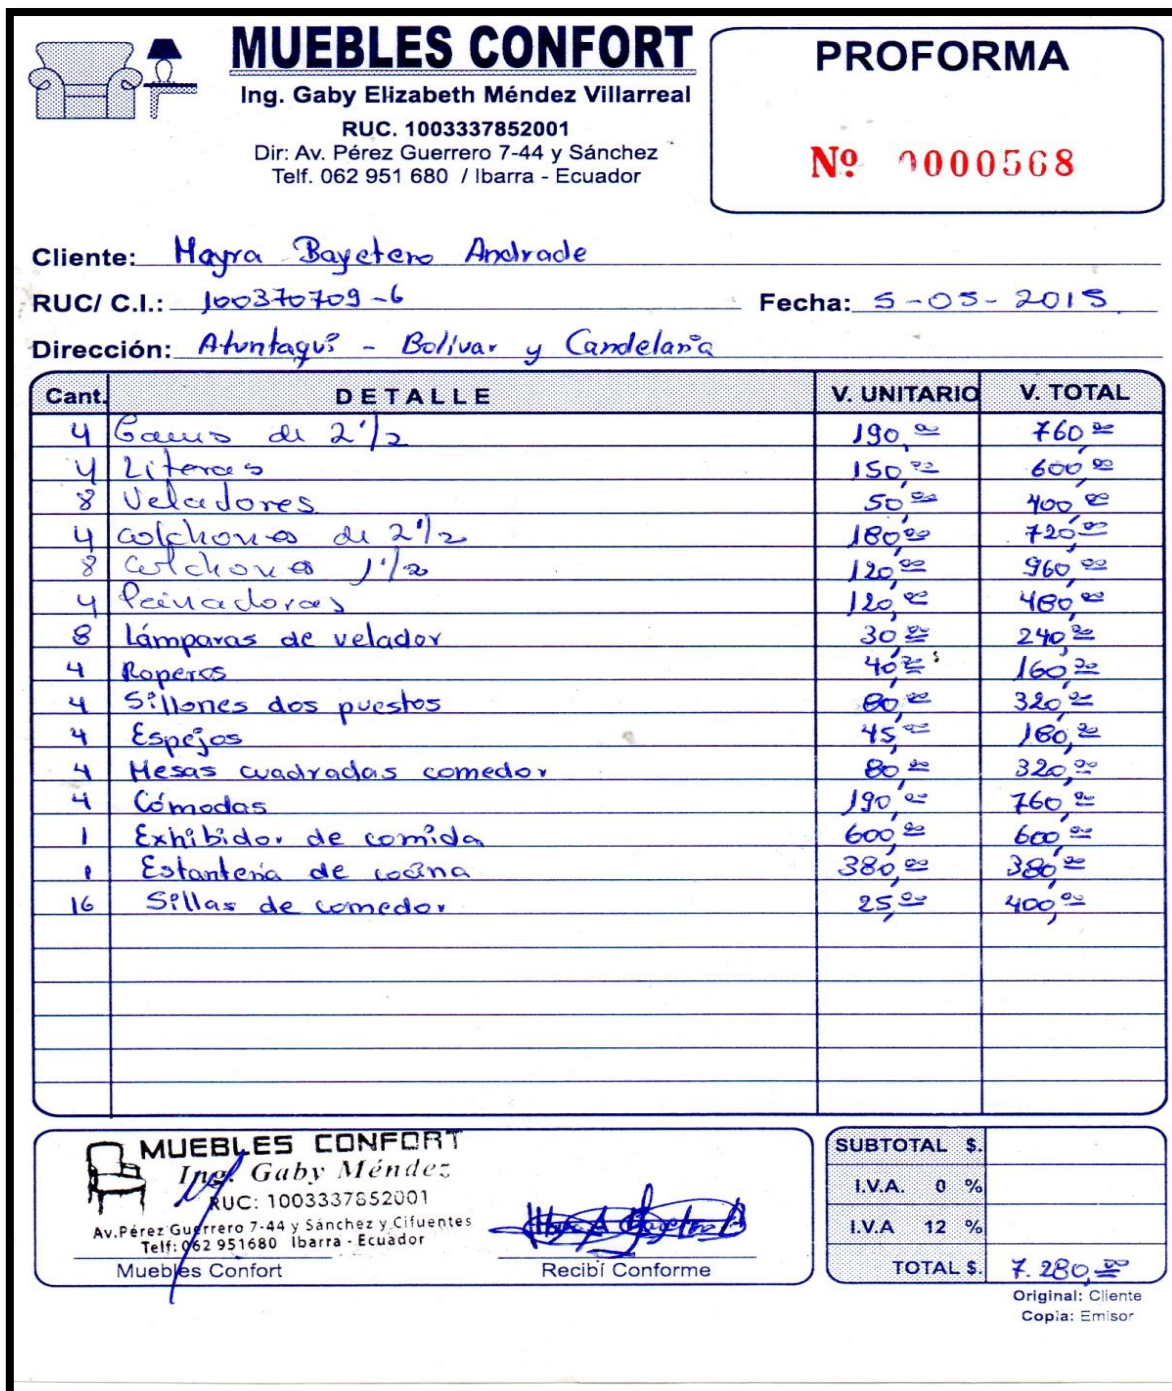 MUEBLES CONFORT
Ing. Gaby Elizabeth Méndez Villarreal
RUC. 1003337852001
Dir: Av. Pérez Guerrero 7-44 y Sánchez
Telf. 062 951 680 / Ibarra - Ecuador
PROFORMA
Nº 0000568
Cliente: Mayra Bayetero Andrade
RUC/ C.I.: 100370709-6 Fecha: 5-05-2015
Dirección: Atuntaqui - Bolívar y Candelaria
Cant. DETALLE V. UNITARIO V. TOTAL
4 Camas de 2 1/2 190,00 760,00
4 Literas 150,00 600,00
8 Veladores 50,00 400,00
4 Colchones de 2 1/2 180,00 720,00
8 Colchones 1 1/2 120,00 960,00
4 Peinadoras 120,00 480,00
8 Lámparas de velador 30,00 240,00
4 Roperos 40,00 160,00
4 Sillones dos puestos 80,00 320,00
4 Espejos 45,00 180,00
4 Mesas cuadradas comedor 80,00 320,00
4 Cómodas 190,00 760,00
1 Exhibidor de comida 600,00 600,00
1 Estantería de cocina 380,00 380,00
16 Sillas de comedor 25,00 400,00
MUEBLES CONFORT
Ing. Gaby Méndez
RUC: 1003337852001
Av.Pérez Guerrero 7-44 y Sánchez y Cifuentes
Telf: 062 951680 Ibarra - Ecuador
Muebles Confort
Recibí Conforme
SUBTOTAL $.
I.V.A. 0 %
I.V.A 12 %
TOTAL $. 7.280,00
Original: Cliente
Copia: Emisor